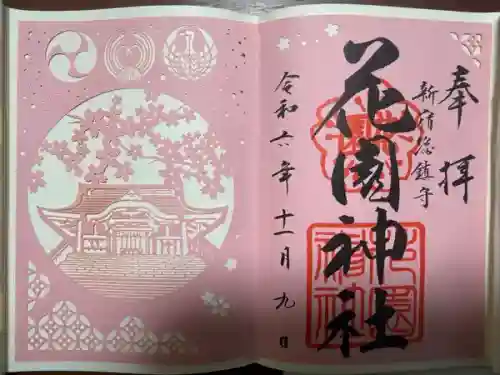 奉拝
新宿総鎮守
花園神社
令和六年十一月九日
花園神社